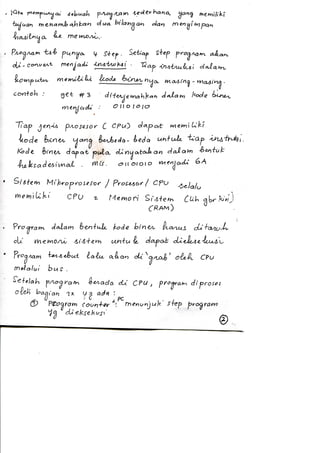 • Kita mempunyai sebuah program sederhana, yang memiliki
tujuan menambahkan dua bilangan dan menyimpan
hasilnya ke memori.
• Program tsb punya 4 step. Setiap step program akan
di-convert menjadi instruksi. Tiap instruksi dalam
komputer memiliki kode biner nya masing-masing.
contoh : get #3 diterjemahkan dalam kode biner
menjadi : 01101010
Tiap jenis prosesor (CPU) dapat memiliki
kode biner yang berbeda-beda untuk tiap instruksi.
Kode biner dapat pula dinyatakan dalam bentuk
heksadesimal. mis. 01101010 menjadi 6A
• Sistem Mikroprosesor / Prosesor / CPU selalu
memiliki CPU & Memori Sistem (Lih gbr)
(RAM)
• Program dalam bentuk kode biner harus ditaruh
di memori sistem untuk dapat dieksekusi.
• Program tersebut lalu akan di 'grab' oleh CPU
melalui bus.
• Setelah program berada di CPU, program diproses
oleh bagian 2x yg ada :
① Program counter : PC menunjuk step program
yg dieksekusi
②